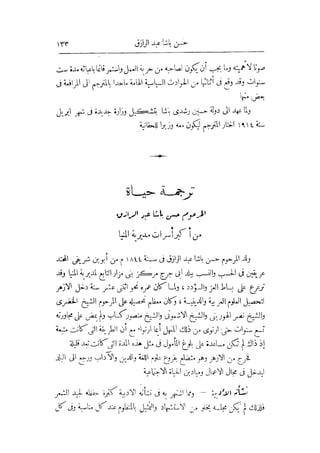 حسن باشا عبد الرازق ١٣٣
صونا لأهميته وما يجب أن يكون لصاحبه من حرية العمل واستمر قائما باعبائه مدة ست
سنوات وقد وقع فى أثنائها من الحوادث السياسية الهامة ماحدا بالمترجم الى المرافعة فى
بعض منها
ولما عهد الى دولة حسين رشدى باشا بتشكيل وزارة جديدة فى شهر ابريل
سنة ١٩١٤ اختار المترجم ليكون معه وزيرا للحقانية
ترجمة حياة
المرحوم حسن باشا عبد الرازق
من أكبر أسرات مديرية المنيا
ولد المرحوم حسن باشا عبد الرازق فى سنة ١٨٤٤ م من أبوين شريفى المحتد
عريقين فى الحسب والنسب ببلد ابى جرج مركز بنى مزار التابع لمديرية المنيا وقد
ترعرع على بساط العز والسؤدد، ولما كان عمره نحو اثنى عشر سنة دخل الازهر
لتحصيل العلوم العربية والدينية، وكان معظم تحصيله على المرحوم الشيخ الخضرى
والشيخ نصر الهورينى والشيخ الاشمونى والشيخ منصور كساب ولم يمض على مجاورته
تسع سنوات حتى ارتوى من ذلك المنهل أيما ارتواء مع أن الطريقة التى كانت متبعة
إذ ذاك لم تكن مساعدة على بلوغ المأمول فى مثل هذه المدة التى كانت تعد قليلة
فخرج من الازهر وهو متضلع بفروع علوم اللغة والدين والآداب ورجع الى البلد
ليدخل فى مجال الاعمال وميادين الحياة الاجتماعية
نشأته الأدبية — ومما اشتهر به فى نشأته الادبية كثرة حفظه لجيد الشعر
فلذلك لم يكن مجلسه يخلو من الاستشهاد والتمثيل بالمنظوم عند كل مناسبة وفى كل